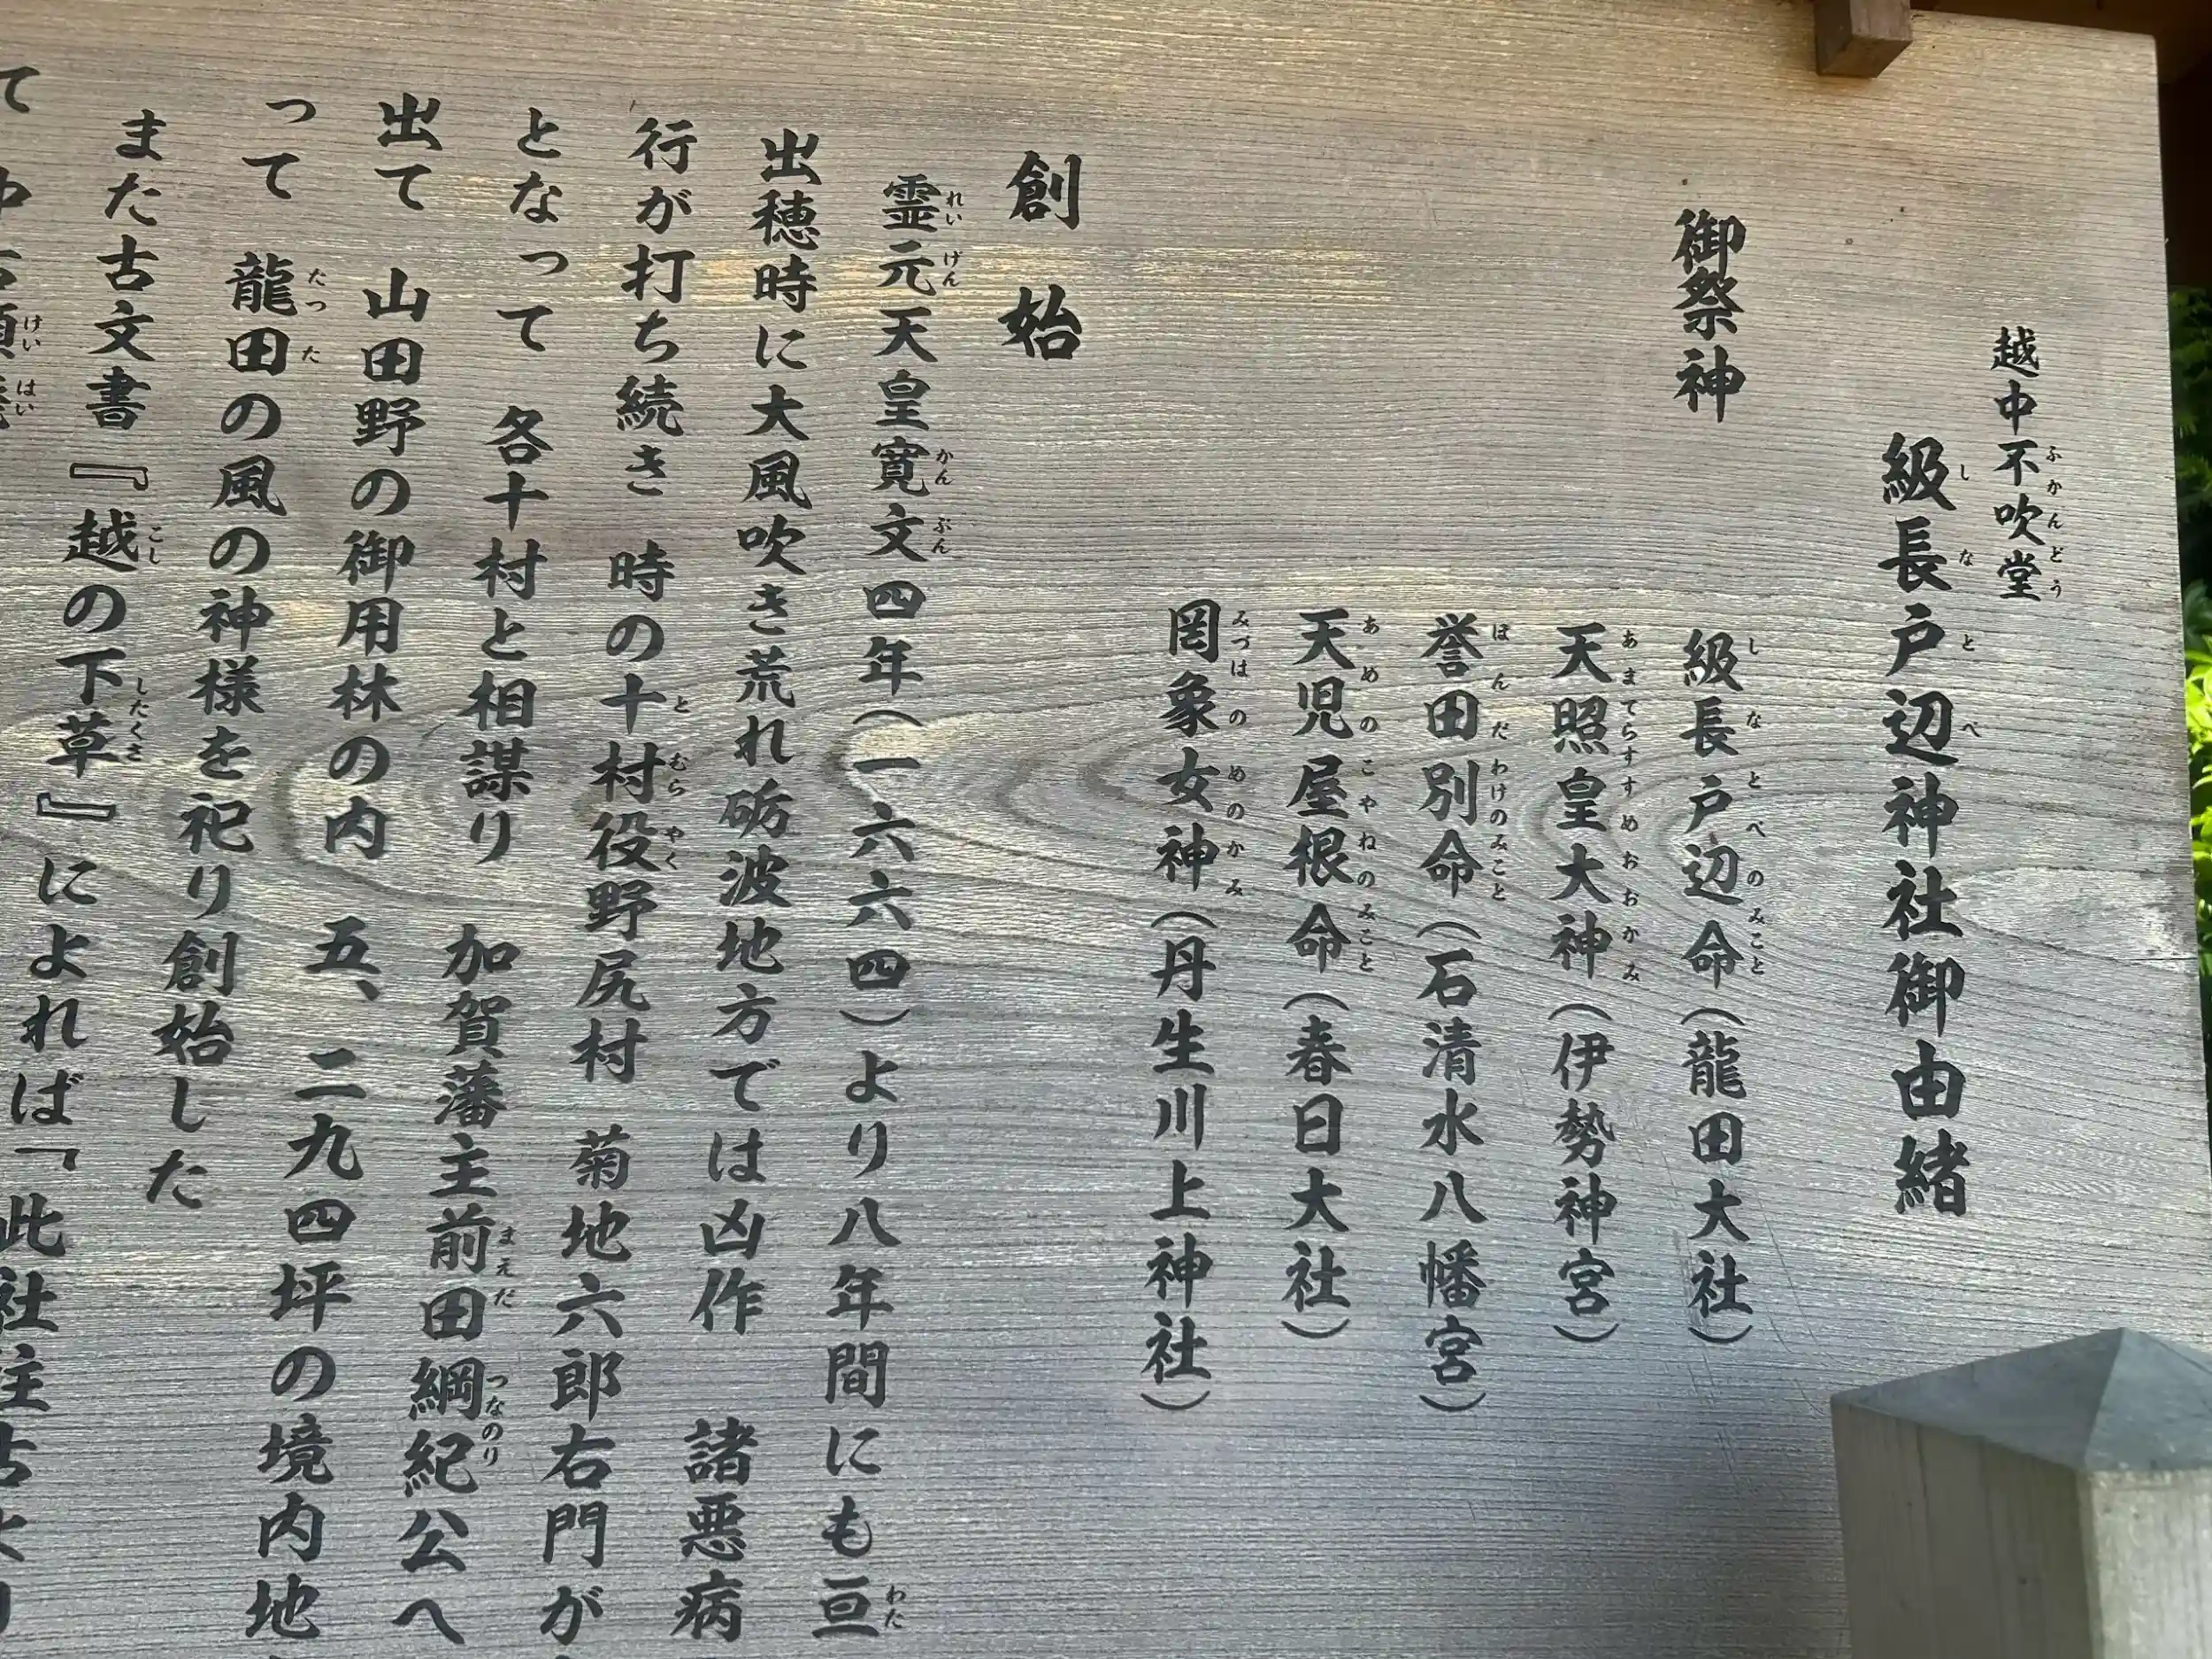 越中不吹堂
級長戸辺神社御由緒
御祭神
級長戸辺命(龍田大社)
天照皇大神(伊勢神宮)
誉田別命(石清水八幡宮)
天児屋根命(春日大社)
罔象女神(丹生川上神社)
創始
霊元天皇寛文四年(一六六四)より八年間にも亘
出穂時に大風吹き荒れ砺波地方では凶作 諸悪病
行が打ち続き 時の十村役野尻村 菊地六郎右門が
となって 各十村と相謀り 加賀藩主前田綱紀公へ
出て 山田野の御用林の内 五、二九四坪の境内地
って 龍田の風の神様を祀り創始した
また古文書『越の下草』によれば「此社往古